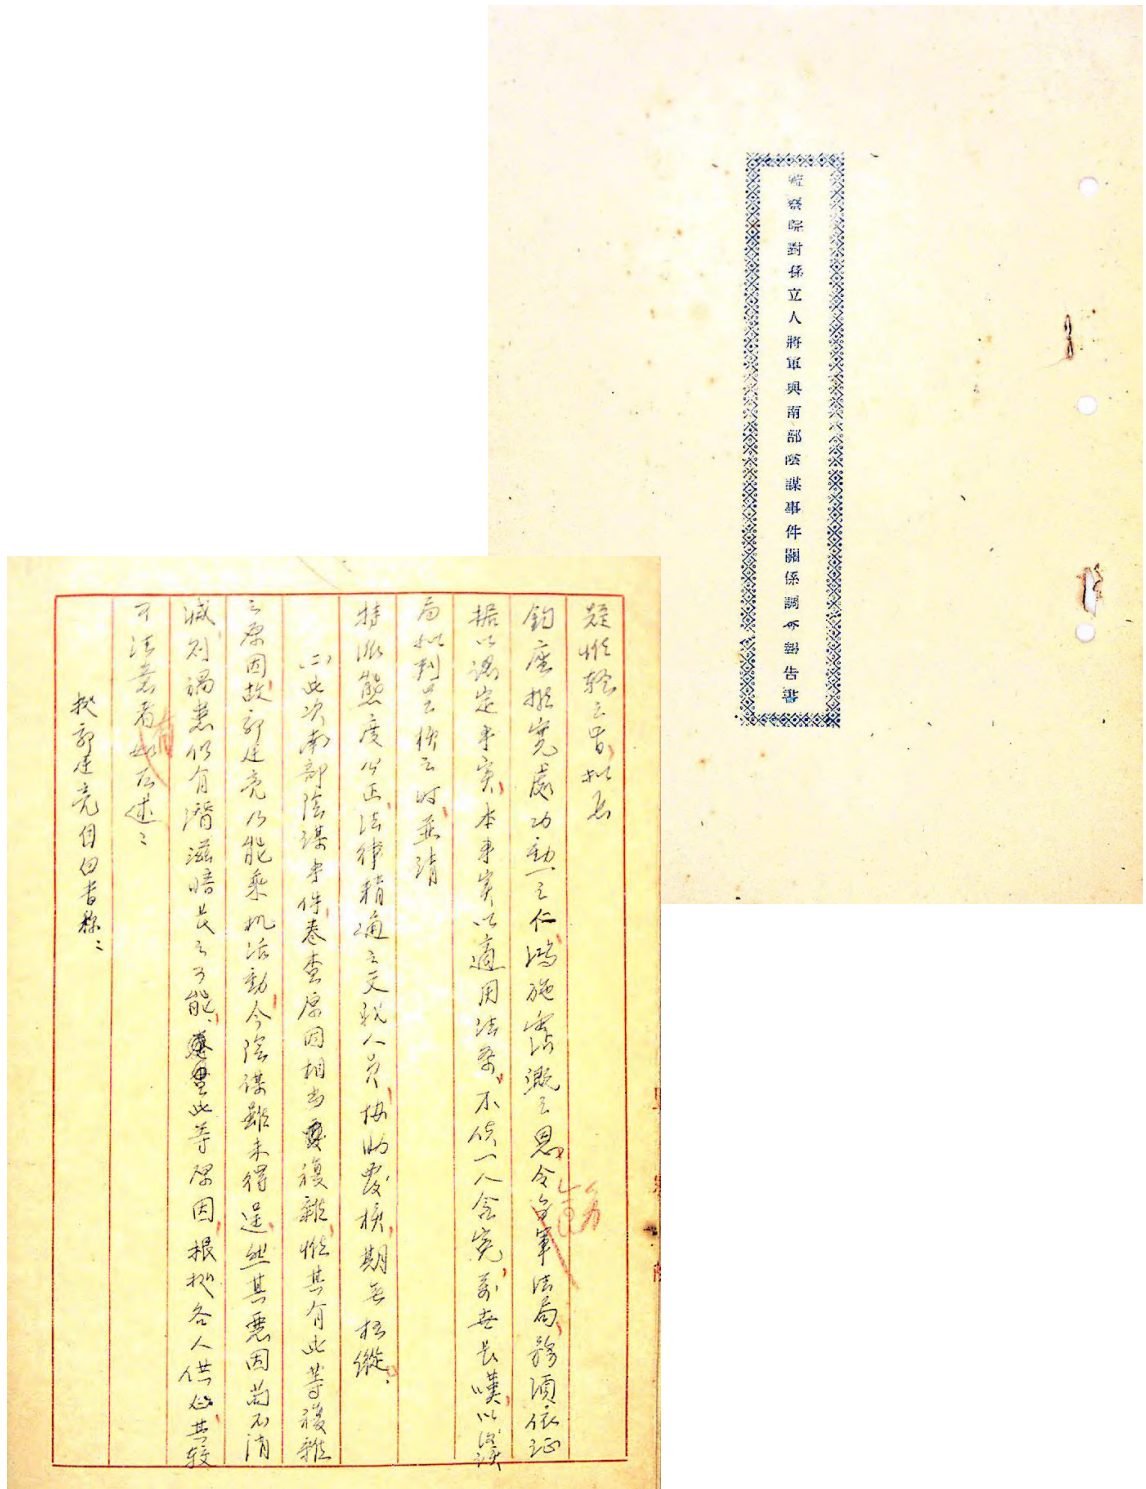 監察院對孫立人將軍與南部陰謀事件關係調查報告書
疑惟輕之旨、擬懇
鈞座推寬處功勳之仁、鴻施霑溉之恩、令軍法局、務須依證
据以認定事實、本事實以適用法條、不使一人含冤、萬世長嘆、以
局擬判呈核之時、並請
特派態度公正、法律精通之文職人員、協助覆核、期無枉縱、
(二)此次南部陰謀事件、卷查原因相当複雜、惟其有此等複雜
之原因、故郭廷亮乃能乘机活動、今陰謀雖未得逞、然其惡因苟不消
滅、則禍患仍有潛滋暗長之可能、此等原因、根据各人供詞、其較
可注意者如左述：
按郭廷亮自白書稱：